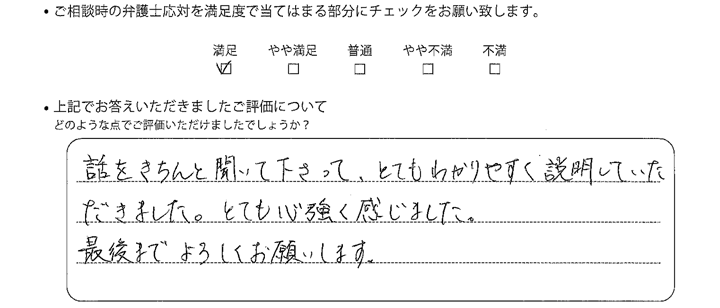 ・ご相談時の弁護士応対を満足度で当てはまる部分にチェックをお願い致します。
満足 やや満足 普通 やや不満 不満
☑ □ □ □ □
・上記でお答えいただきましたご評価について
どのような点でご評価いただけましたでしょうか？
話をきちんと聞いて下さって、とてもわかりやすく説明していた
だきました。とても心強く感じました。
最後までよろしくお願いします。